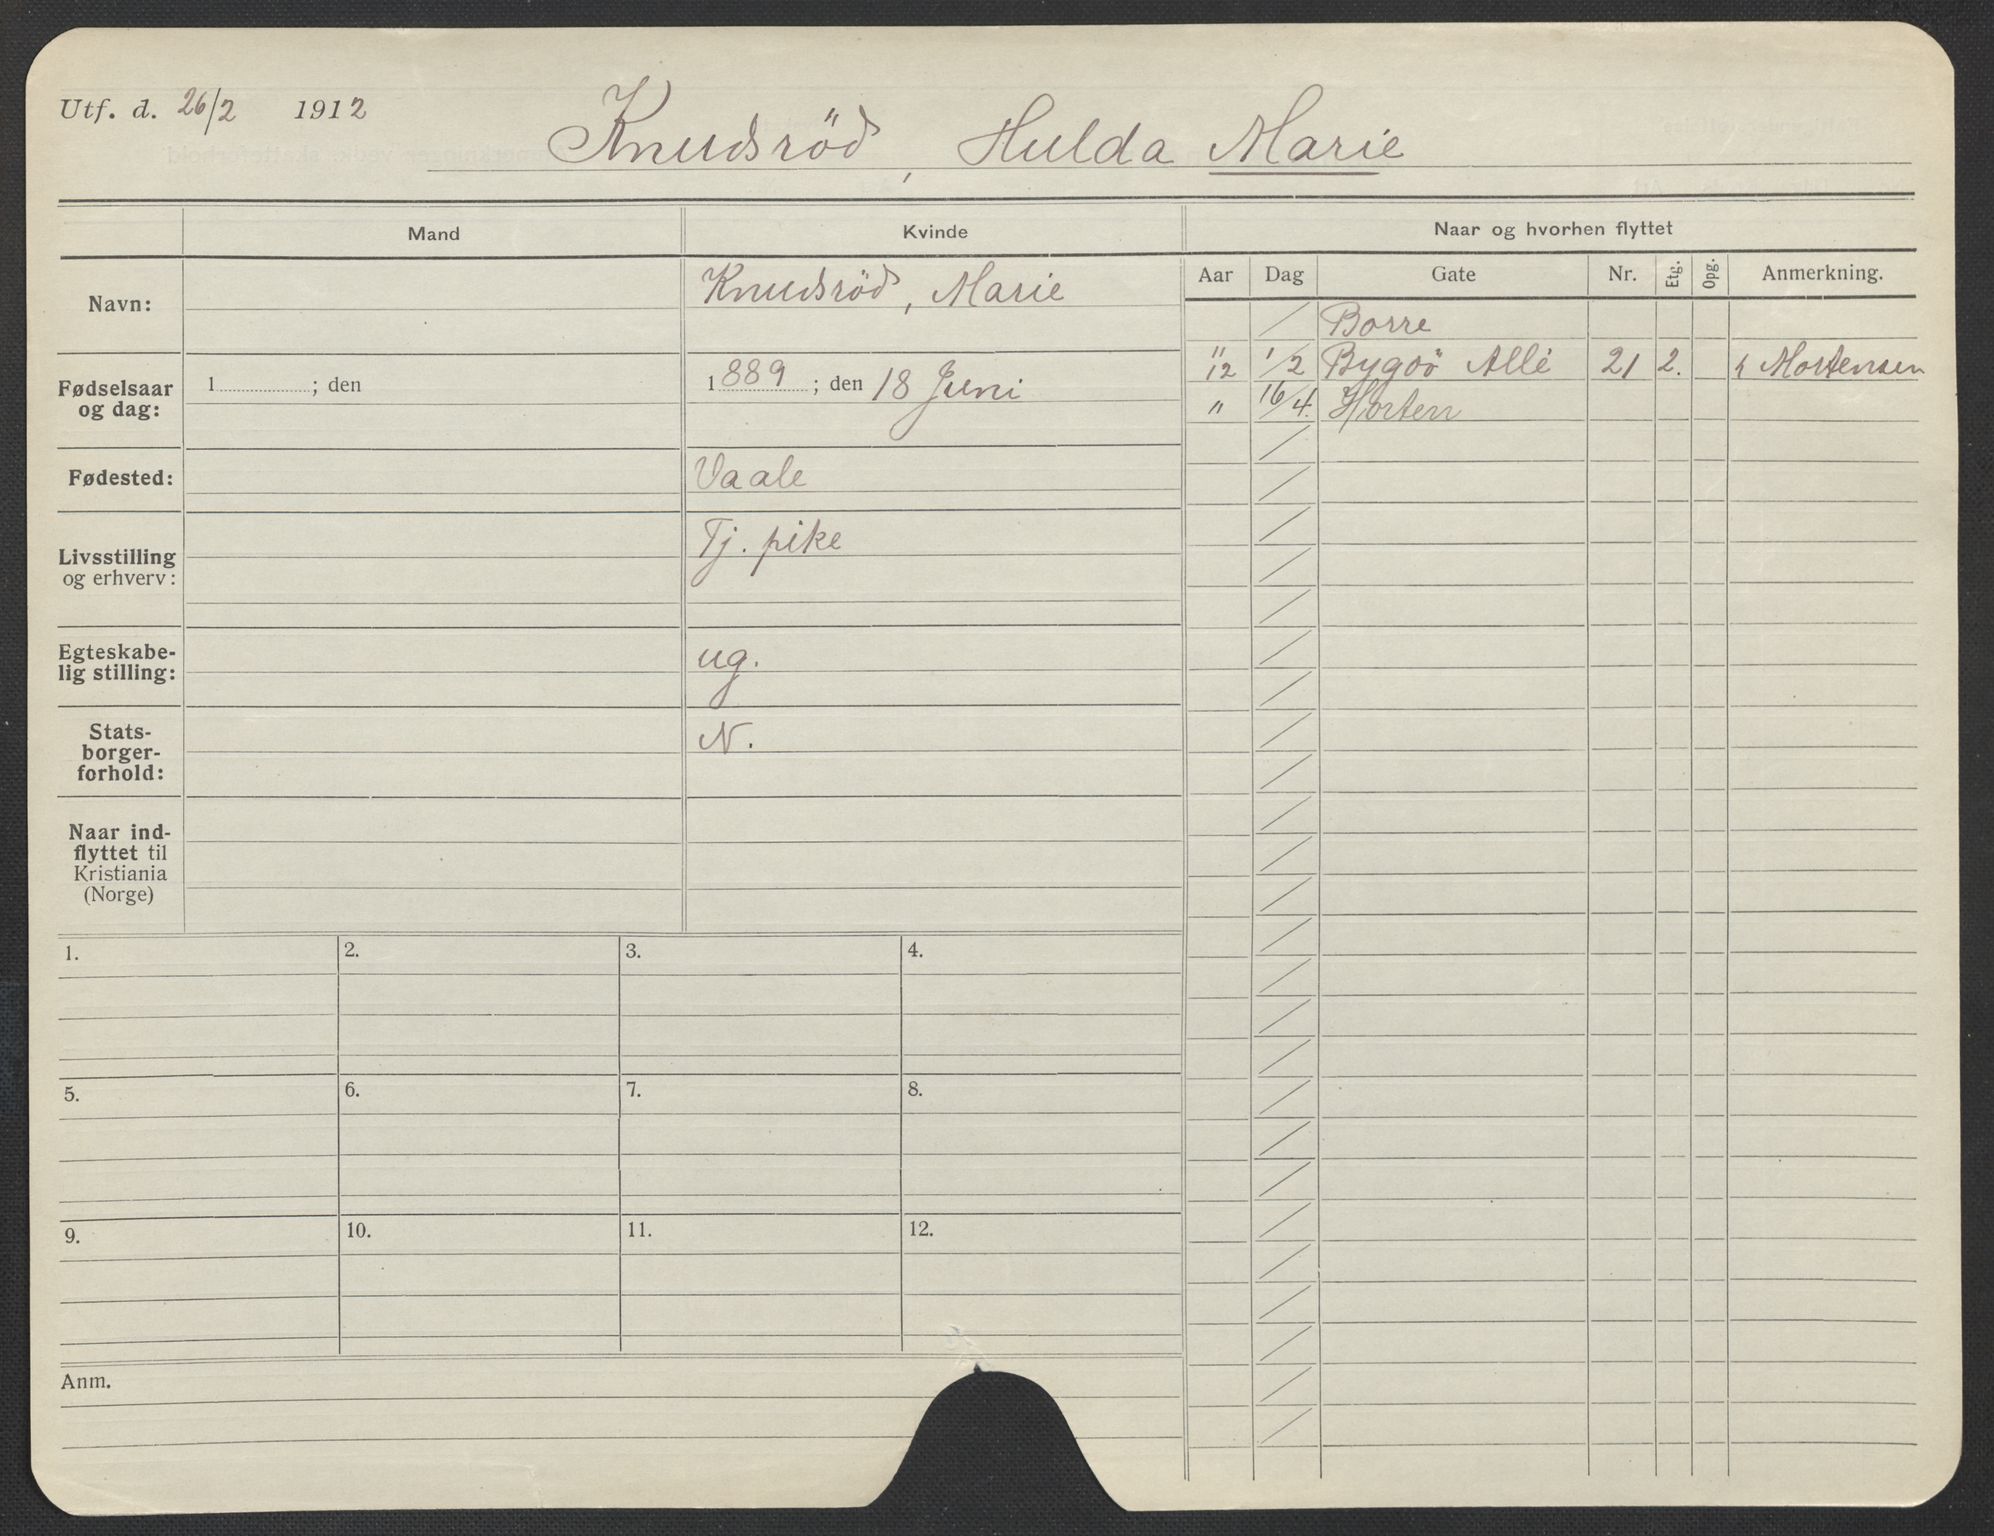 Utf. d. 26/2 1912
Knudsröd, Hulda Marie
Mand
Kvinde
Naar og hvorhen flyttet
Navn:
Knudsröd, Marie
Fødselsaar
og dag:
1 ; den
1889 ; den 18 Juni
Fødested:
Vaale
Livsstilling
og erhverv:
Tj. pike
Egteskabe-
lig stilling:
ug.
Stats-
borger-
forhold:
N.
Naar ind-
flyttet til
Kristiania
(Norge)
Aar Dag Gate Nr. Etg. Opg. Anmerkning.
" / Borre
12 1/2 Bygöö Allé 21 2. Mortensen
" 16/4. Horten
1. 2. 3. 4.
5. 6. 7. 8.
9. 10. 11. 12.
Anm.